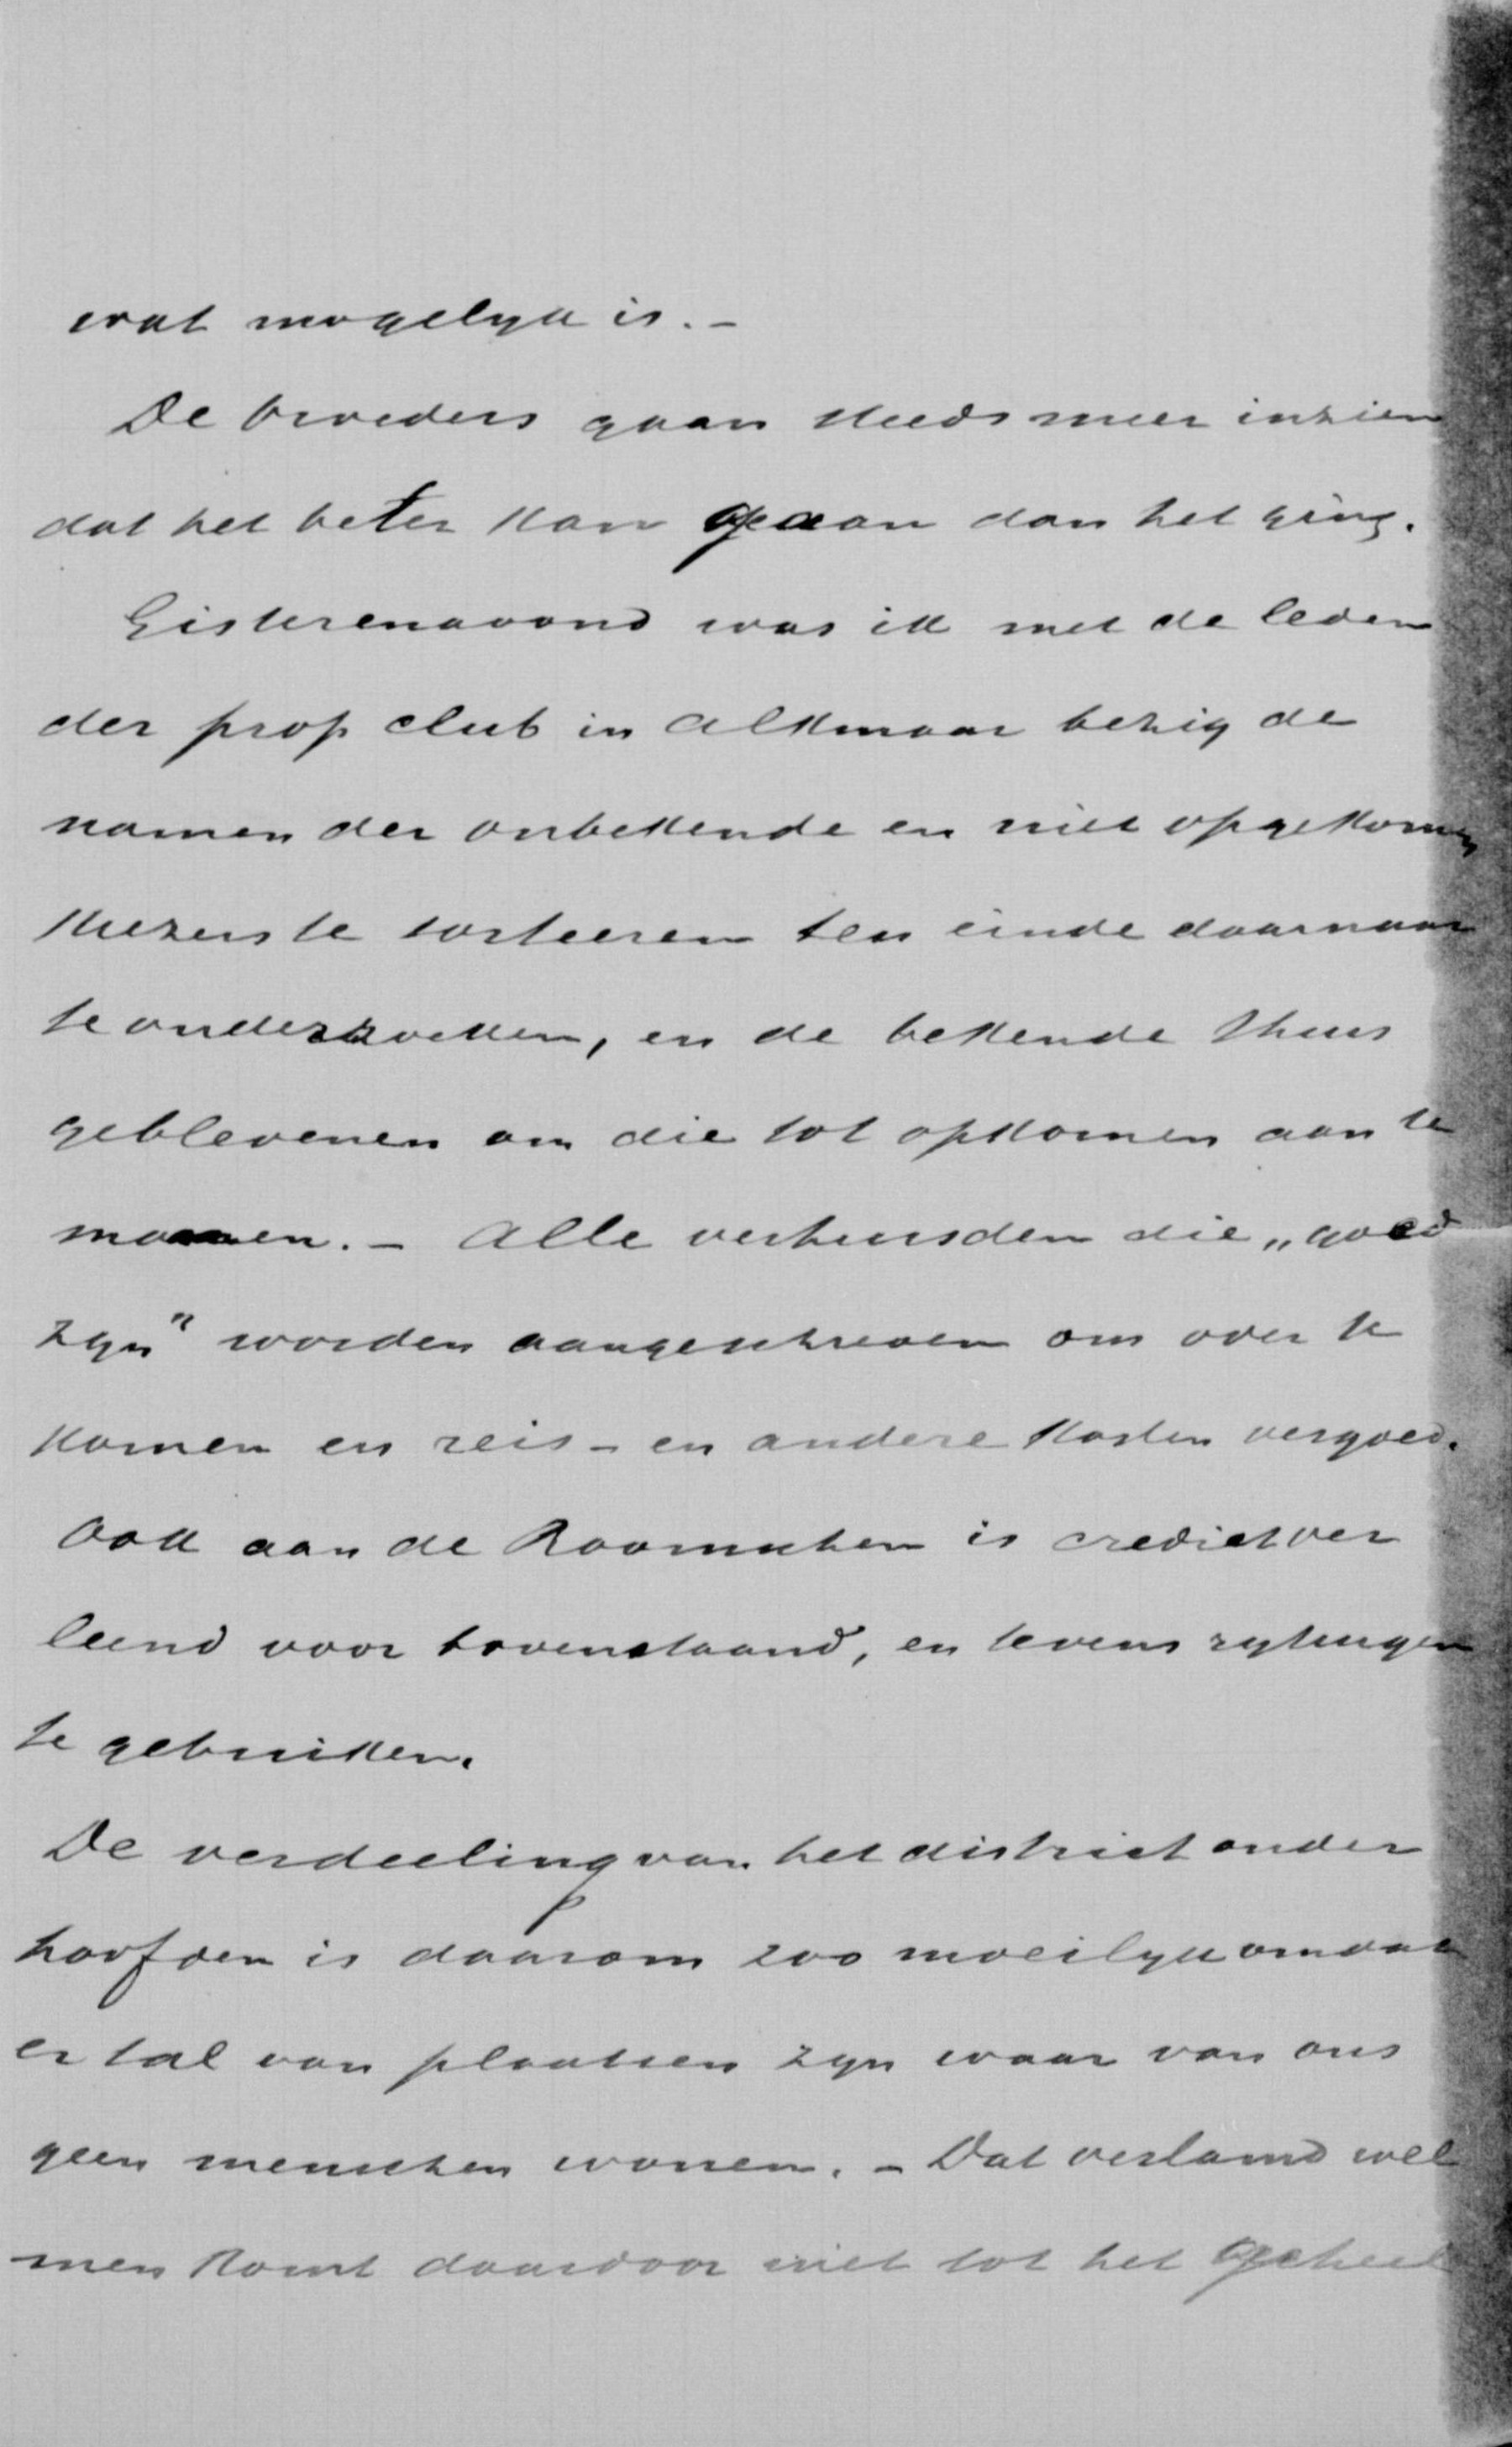 wat mogelyk is. -
De broeders gaan steeds meer inzien
dat het beter kan gaan dan het ging.
Gisterenavond was ik met de leden
der prop club in Alkmaar bezig de
namen der onbekende en niet opgekomen
kiezers te sorteeren ten einde daarnaar
te onderzoeken, en de bekende thuis
geblevenen om die tot opkomen aan te
manen. - Alle verhuisden die „goed
zyn" worden aangeschreven om over te
komen en reis- en andere kosten vergoed.
Ook aan de Roomschen is crediet ver
leend voor bovenstaand, en tevens rytuigen
te gebruiken.
De verdeeling van het district onder
hoofden is daarom zoo moeilyk omdat
er tal van plaatsen zyn waar van ons
geen menschen wonen. - Dat verlamd wel
men komt daardoor niet tot het geheel